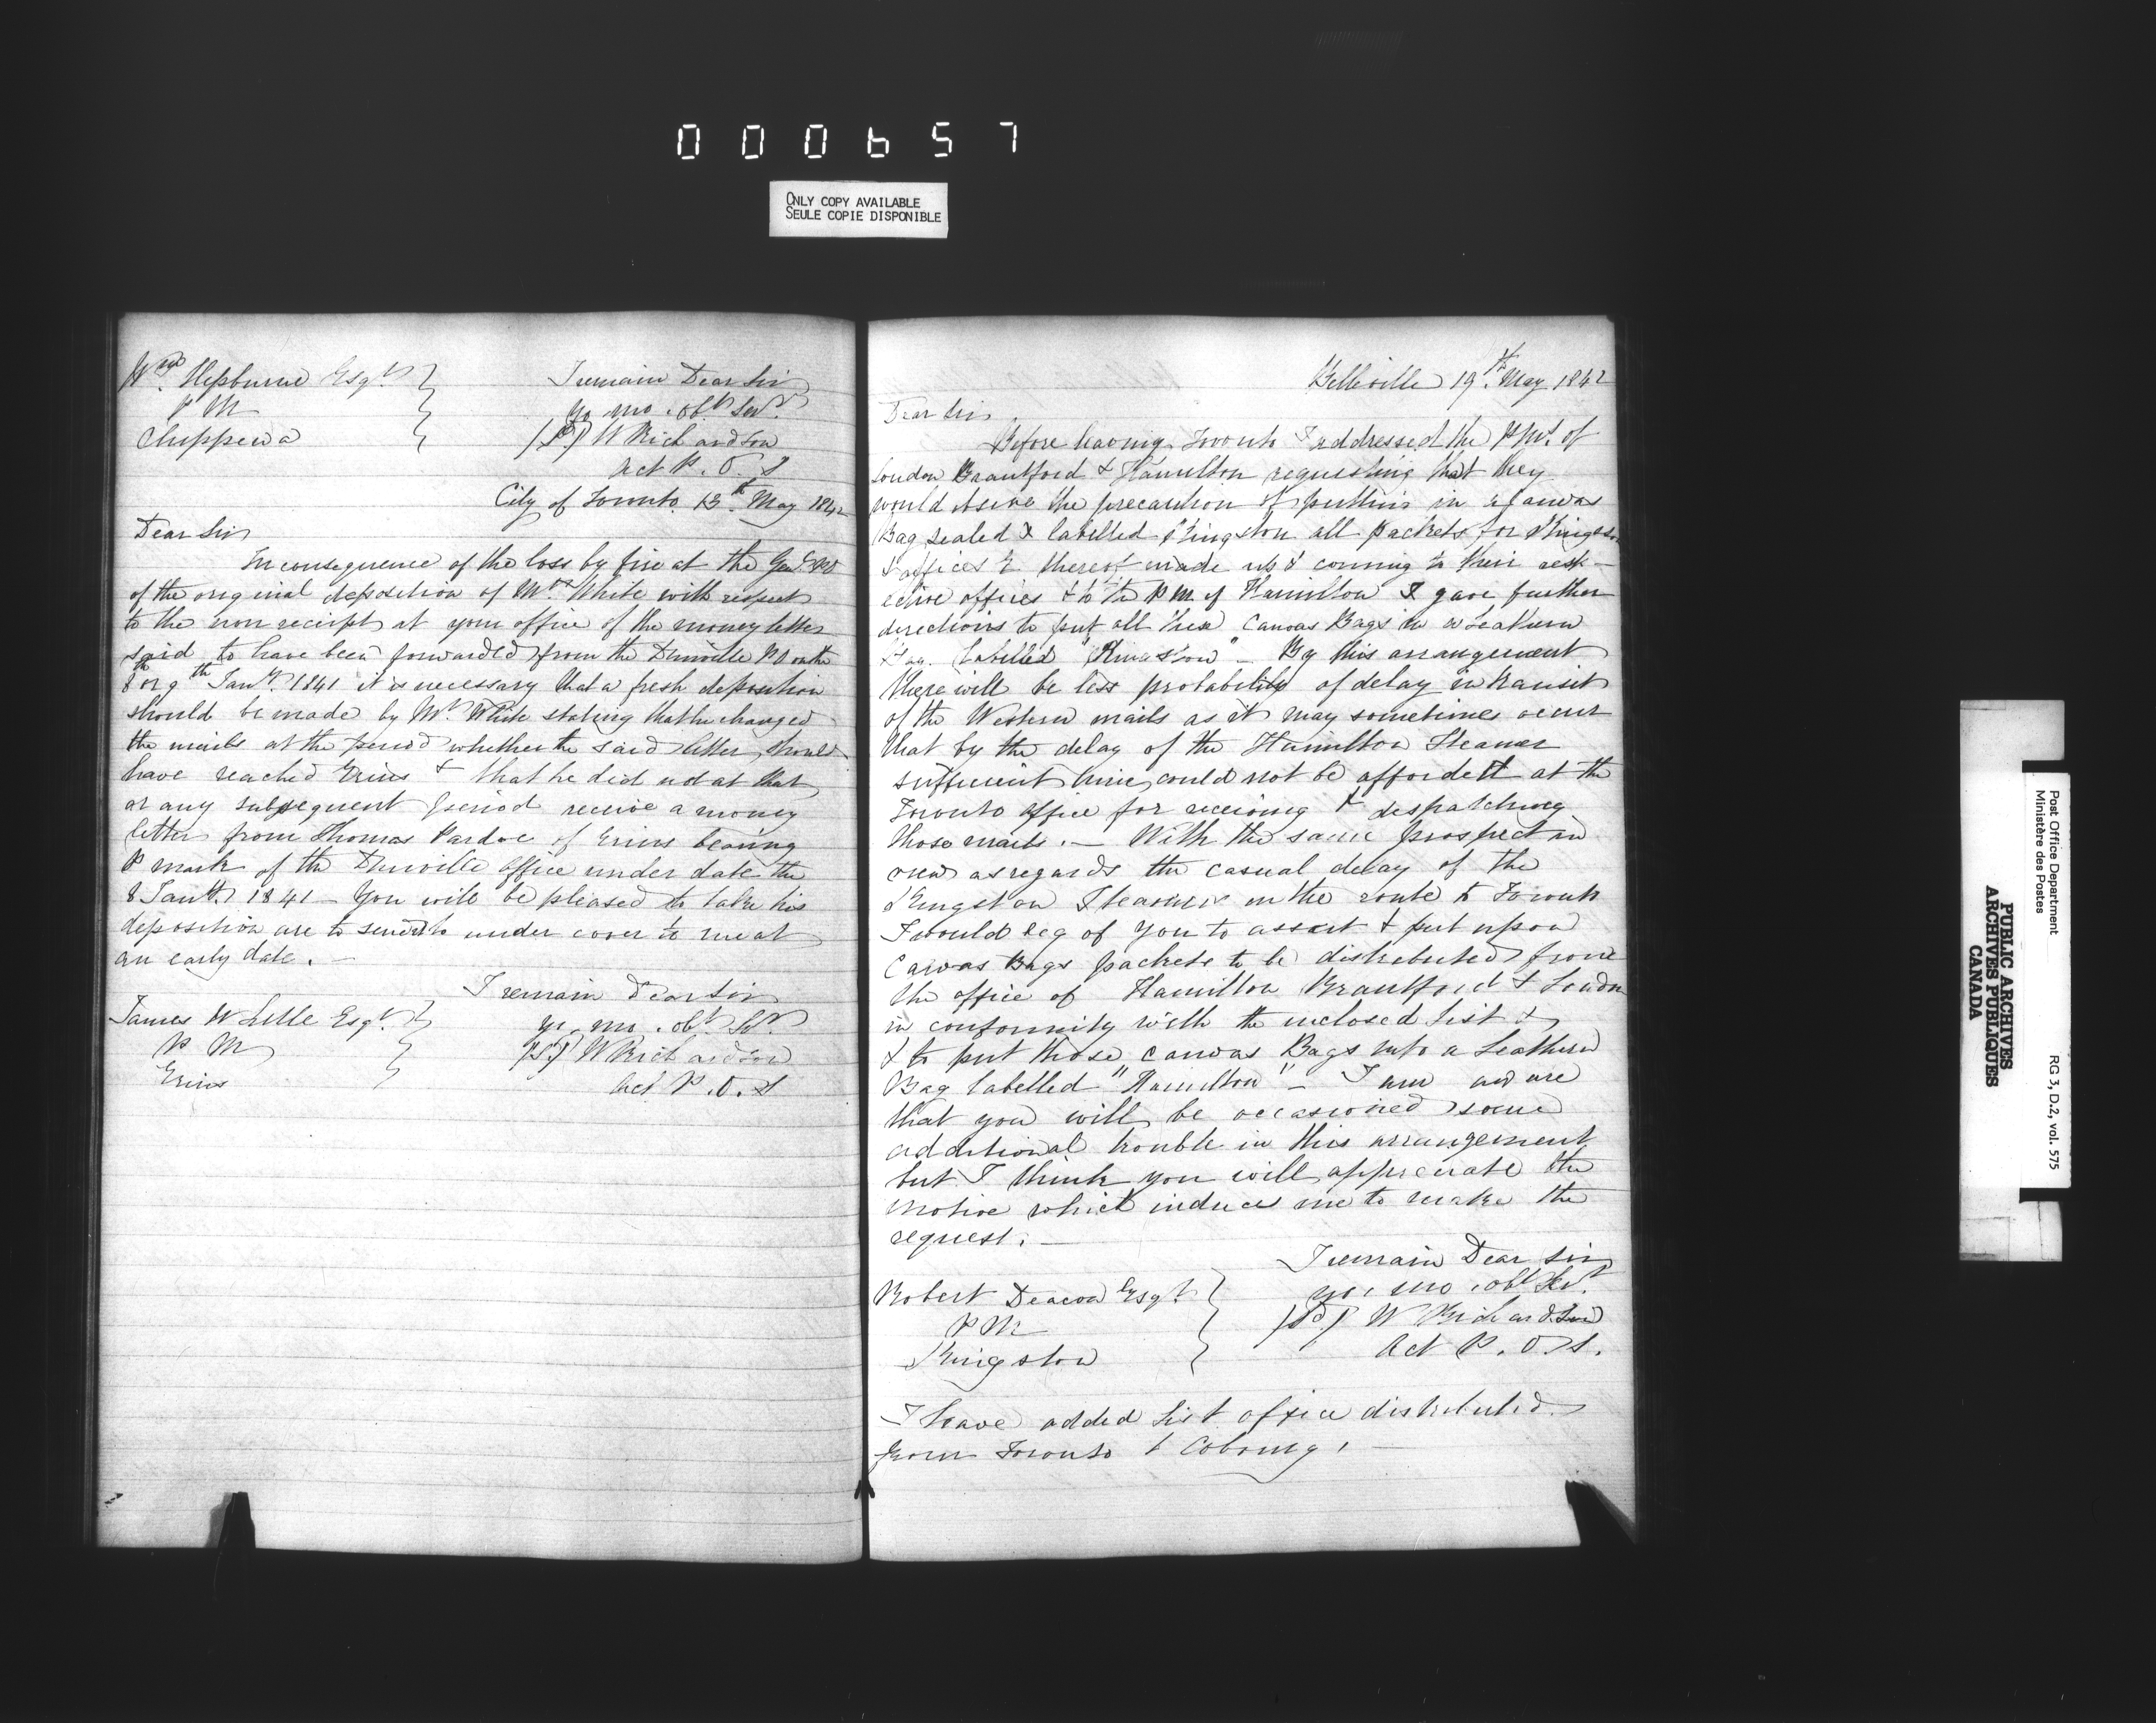 000657
ONLY COPY AVAILABLE
SEULE COPIE DISPONIBLE
Wm. Hepburne Esqr.
P M
Chippewa
I remain Dear Sir
yr. mo. obt. Sevt.
W Richardson
Act P. O. S
City of Toronto 13th May 1842
Dear Sir
In consequence of the loss by fire at the Genl. PO
of the original deposition of Mr. White with respect
to the non receipt at your office of the money letter
said to have been forwarded from the Dunville PO on the
8th or 9th Jany. 1841 it is necessary that a fresh deposition
should be made by Mr. White stating that he changed
the mails at the period whether the said letter should
have reached & that he did not at that
or any subsequent period receive a money
letter from Thomas Pardoe of bearing
P mark of the Dunville office under date the
8 Jany. 1841 – You will be pleased to take his
deposition to under cover to me at
an early date. –
I remain Dear Sir
yr. mo. obt. St.
W Richardson
Act P. O. S
James W Esqr.
P M
Belleville 19th May 1842
Dear Sir
Before leaving Toronto I addressed the of
London Brantford & Hamilton requesting that they
would the precaution of putting in a Canvas
Bag sealed & labelled Kingston all packets for Kingston
& offices thereof made up & coming to their resp-
ective offices & to the P M. of Hamilton I gave further
directions to put all Canvas Bags in a Leathern
Bag labelled "Kingston" – By this arrangement
there will be less probability of delay in transit
of the Western mails as it may sometimes occur
that by the delay of the Hamilton Steamer
sufficient time could not be afforded at the
Toronto office for receiving & despatching
those mails. – With the same prospect in
view as regards the casual delay of the
Kingston Steamer on the route to Toronto
I would beg of you to assort & put up
Canvas Bags packets to be distributed from
the office of Hamilton Brantford & London
in conformity with the inclosed List &
& to put those Canvas Bags into a Leathern
Bag labelled "Hamilton" – I am aware
that you will be occasioned some
additional trouble in this arrangement
but I think you will appreciate the
motive which induces me to make the
request. –
I remain Dear Sir
yr. mo. obt. Sevt.
W Richardson
Act P. O. S.
Robert Deacon Esqr.
P M
Kingston
I have added List office distributed
from Toronto & Cobourg. –
Post Office Department
Ministère des Postes
RG 3, D.2, vol. 575
PUBLIC ARCHIVES
ARCHIVES PUBLIQUES
CANADA